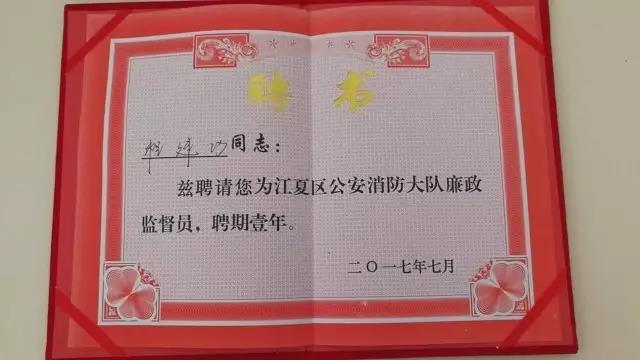 聘书
同志：
兹聘请您为江夏区公安消防大队廉政
监督员，聘期壹年。
二〇一七年七月